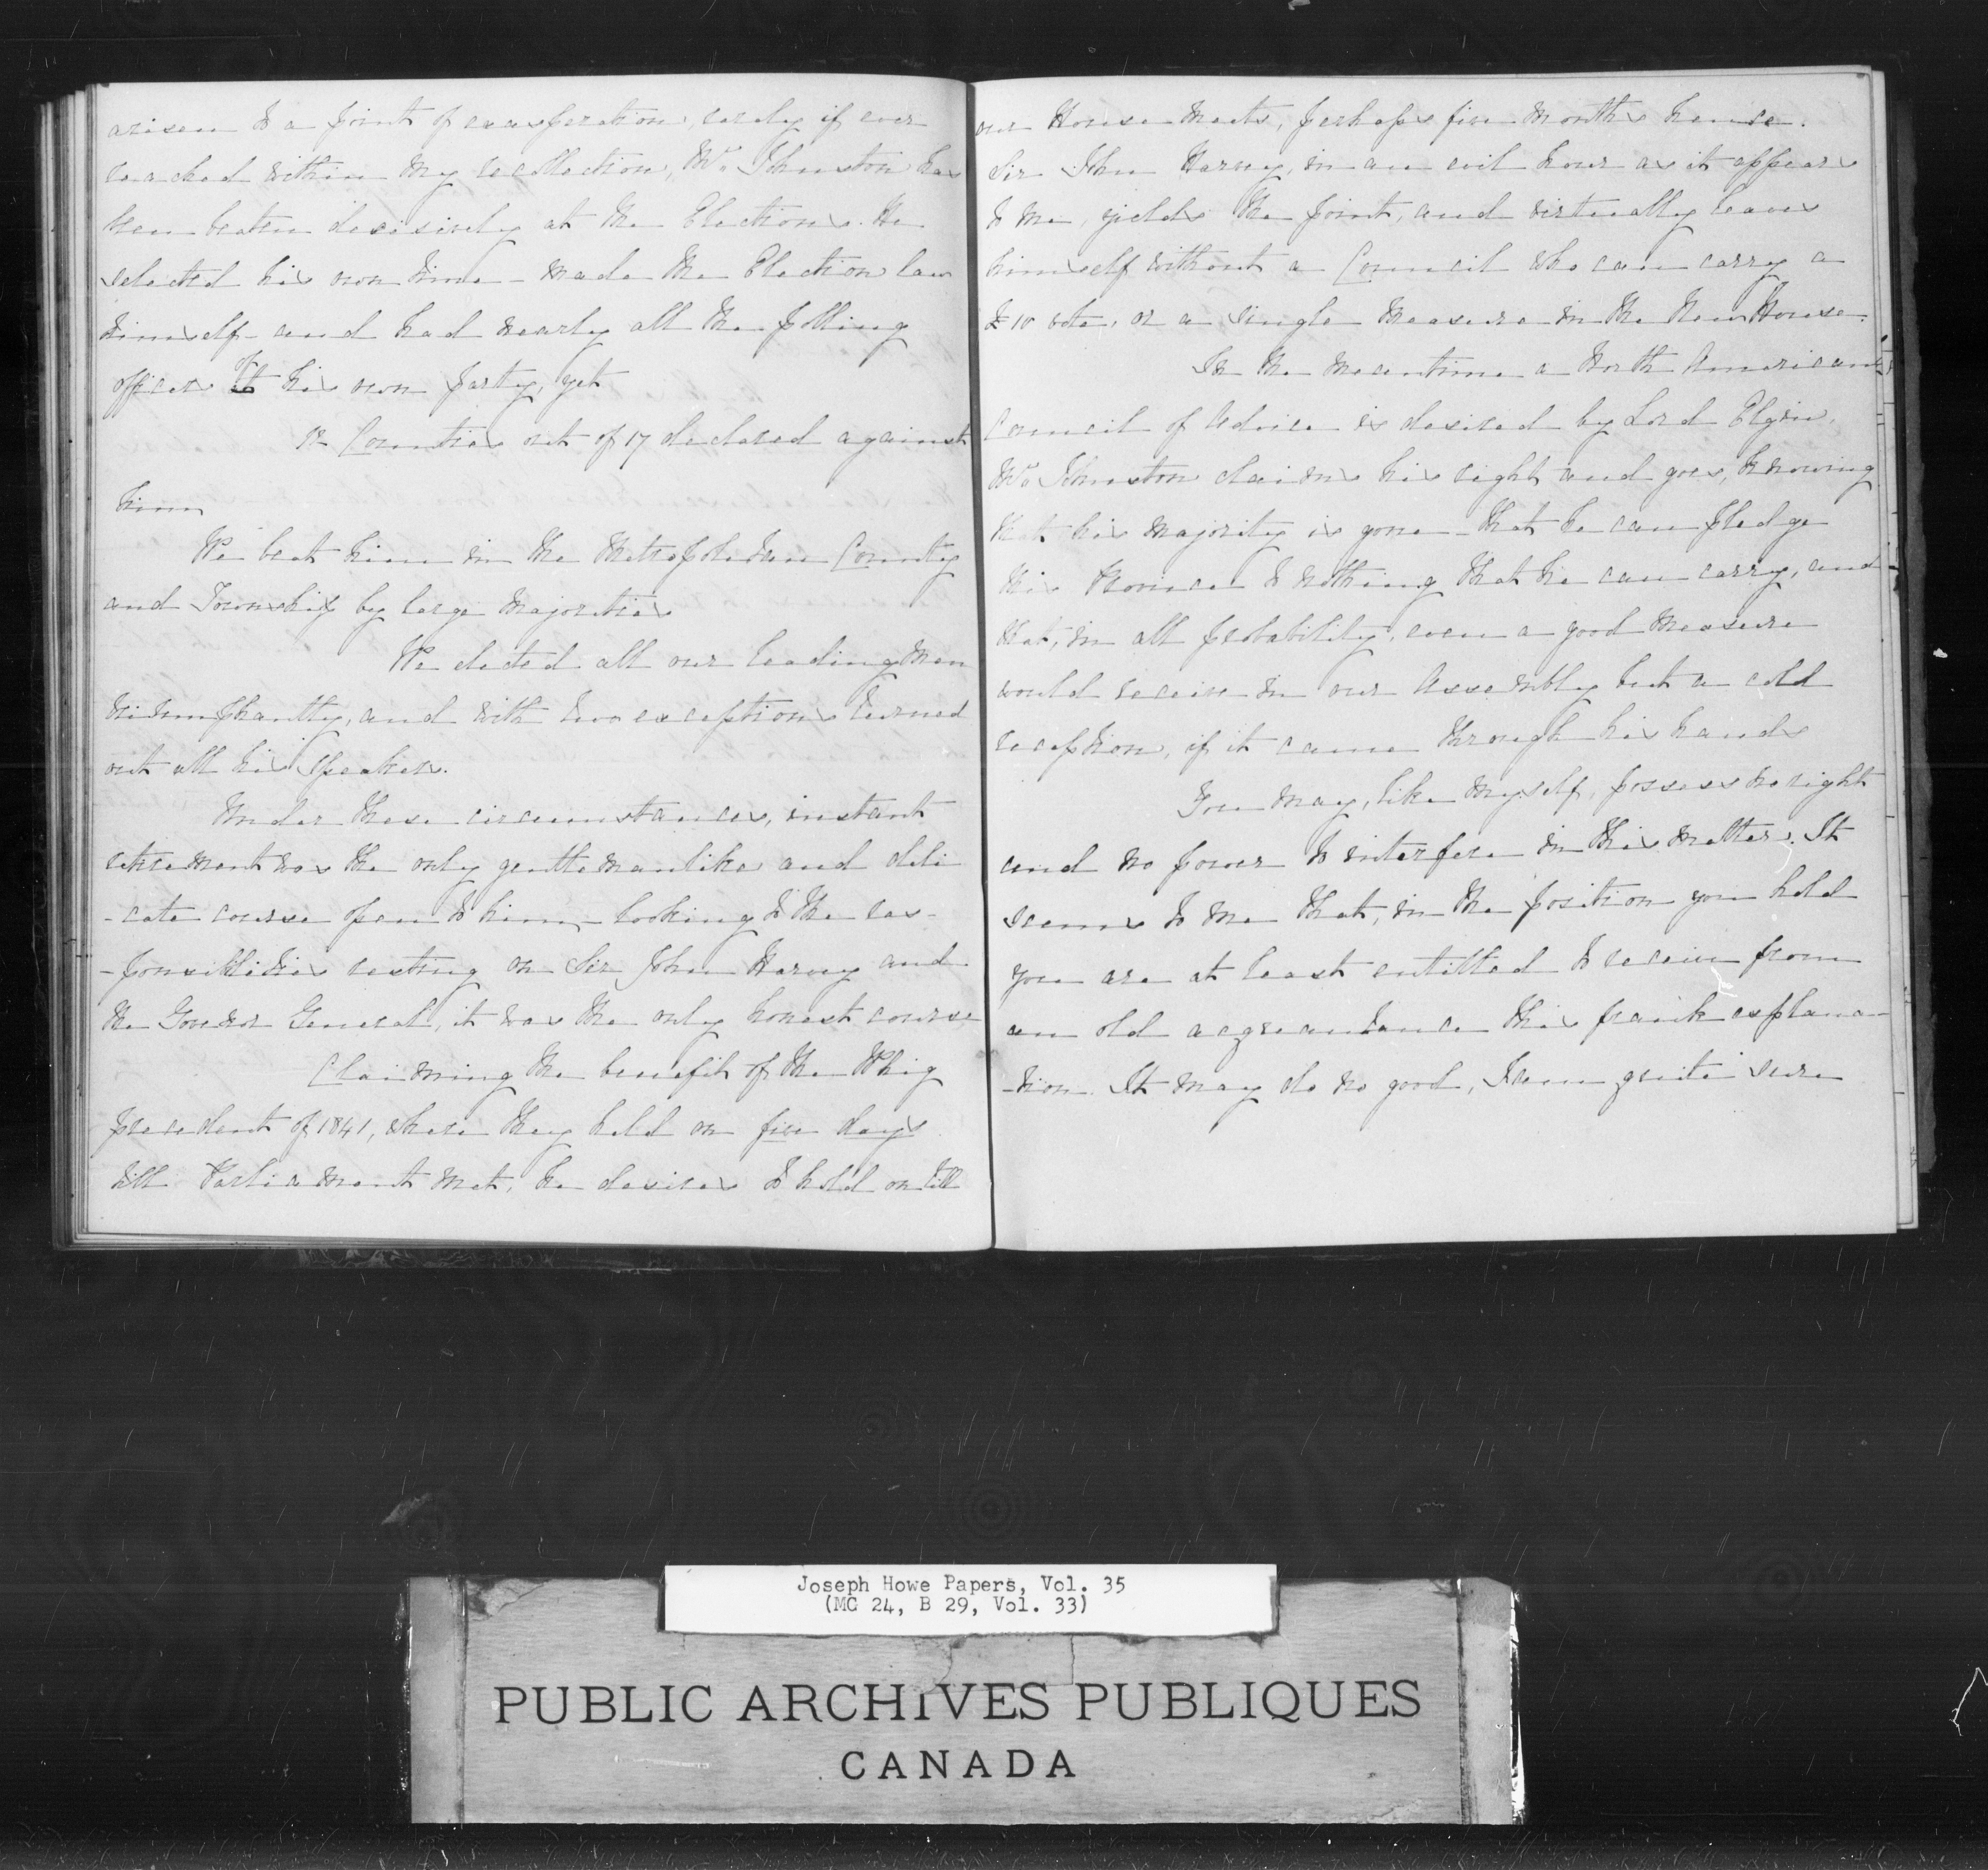 arisen to a point of exasperation, rarely if ever
reached within my recollection, Mr. Johnston has
been beaten decisively at the Elections. He
selected his own time - made the Election law
himself - and had nearly all the polling
officers of his own party, yet
12 Counties out of 17 declared against
him
We beat him in the Metropolitan County
and Township by large majorities
We elected all our leading men
triumphantly, and with two exceptions turned
out all his speakers.
Under these circumstances, instant
retirement was the only gentlemanlike and deli
-cate course open to him - looking to the res-
-ponsibilities resting on Sir John Harvey and
the Governor General, it was the only honest course
Claiming the benefit of the Whig
precedent of 1841, where they held on five days
till Parliament met, he desires to hold on till
our House meets, perhaps five months hence.
Sir John Harvey, in an evil hour as it appears
to me, yields the point, and virtually leaves
himself without a Council who can carry a
£10 vote, or a single measure in the New House.
In the meantime a North American
Council of Advice is desired by Lord Elgin.
Mr Johnston claims his right and goes, knowing
that his majority is gone - that he can pledge
this Province to nothing that he can carry, and
that, in all probability, even a good measure
would receive in our Assembly but a cold
reception, if it came through his hands
You may, like myself, possess no right
and no power to interfere in this matter. It
seems to me that, in the position you hold
you are at least entitled to receive from
an old acqreantance this frank explana-
-tion. It may do no good, I am quite sure
Joseph Howe Papers, Vol. 35
(MG 24, B 29, Vol. 33)
PUBLIC ARCHIVES PUBLIQUES
CANADA